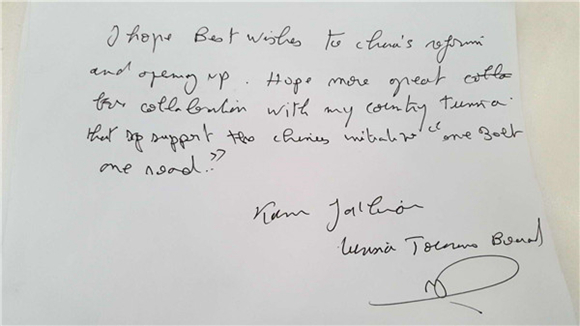 I hope Best wishes to china's reform
and opening up. Hope more great colla
collaboration with my country tunisia.
that support the chinies initiative "one Belt
one road."
Tunisia Tourism Board